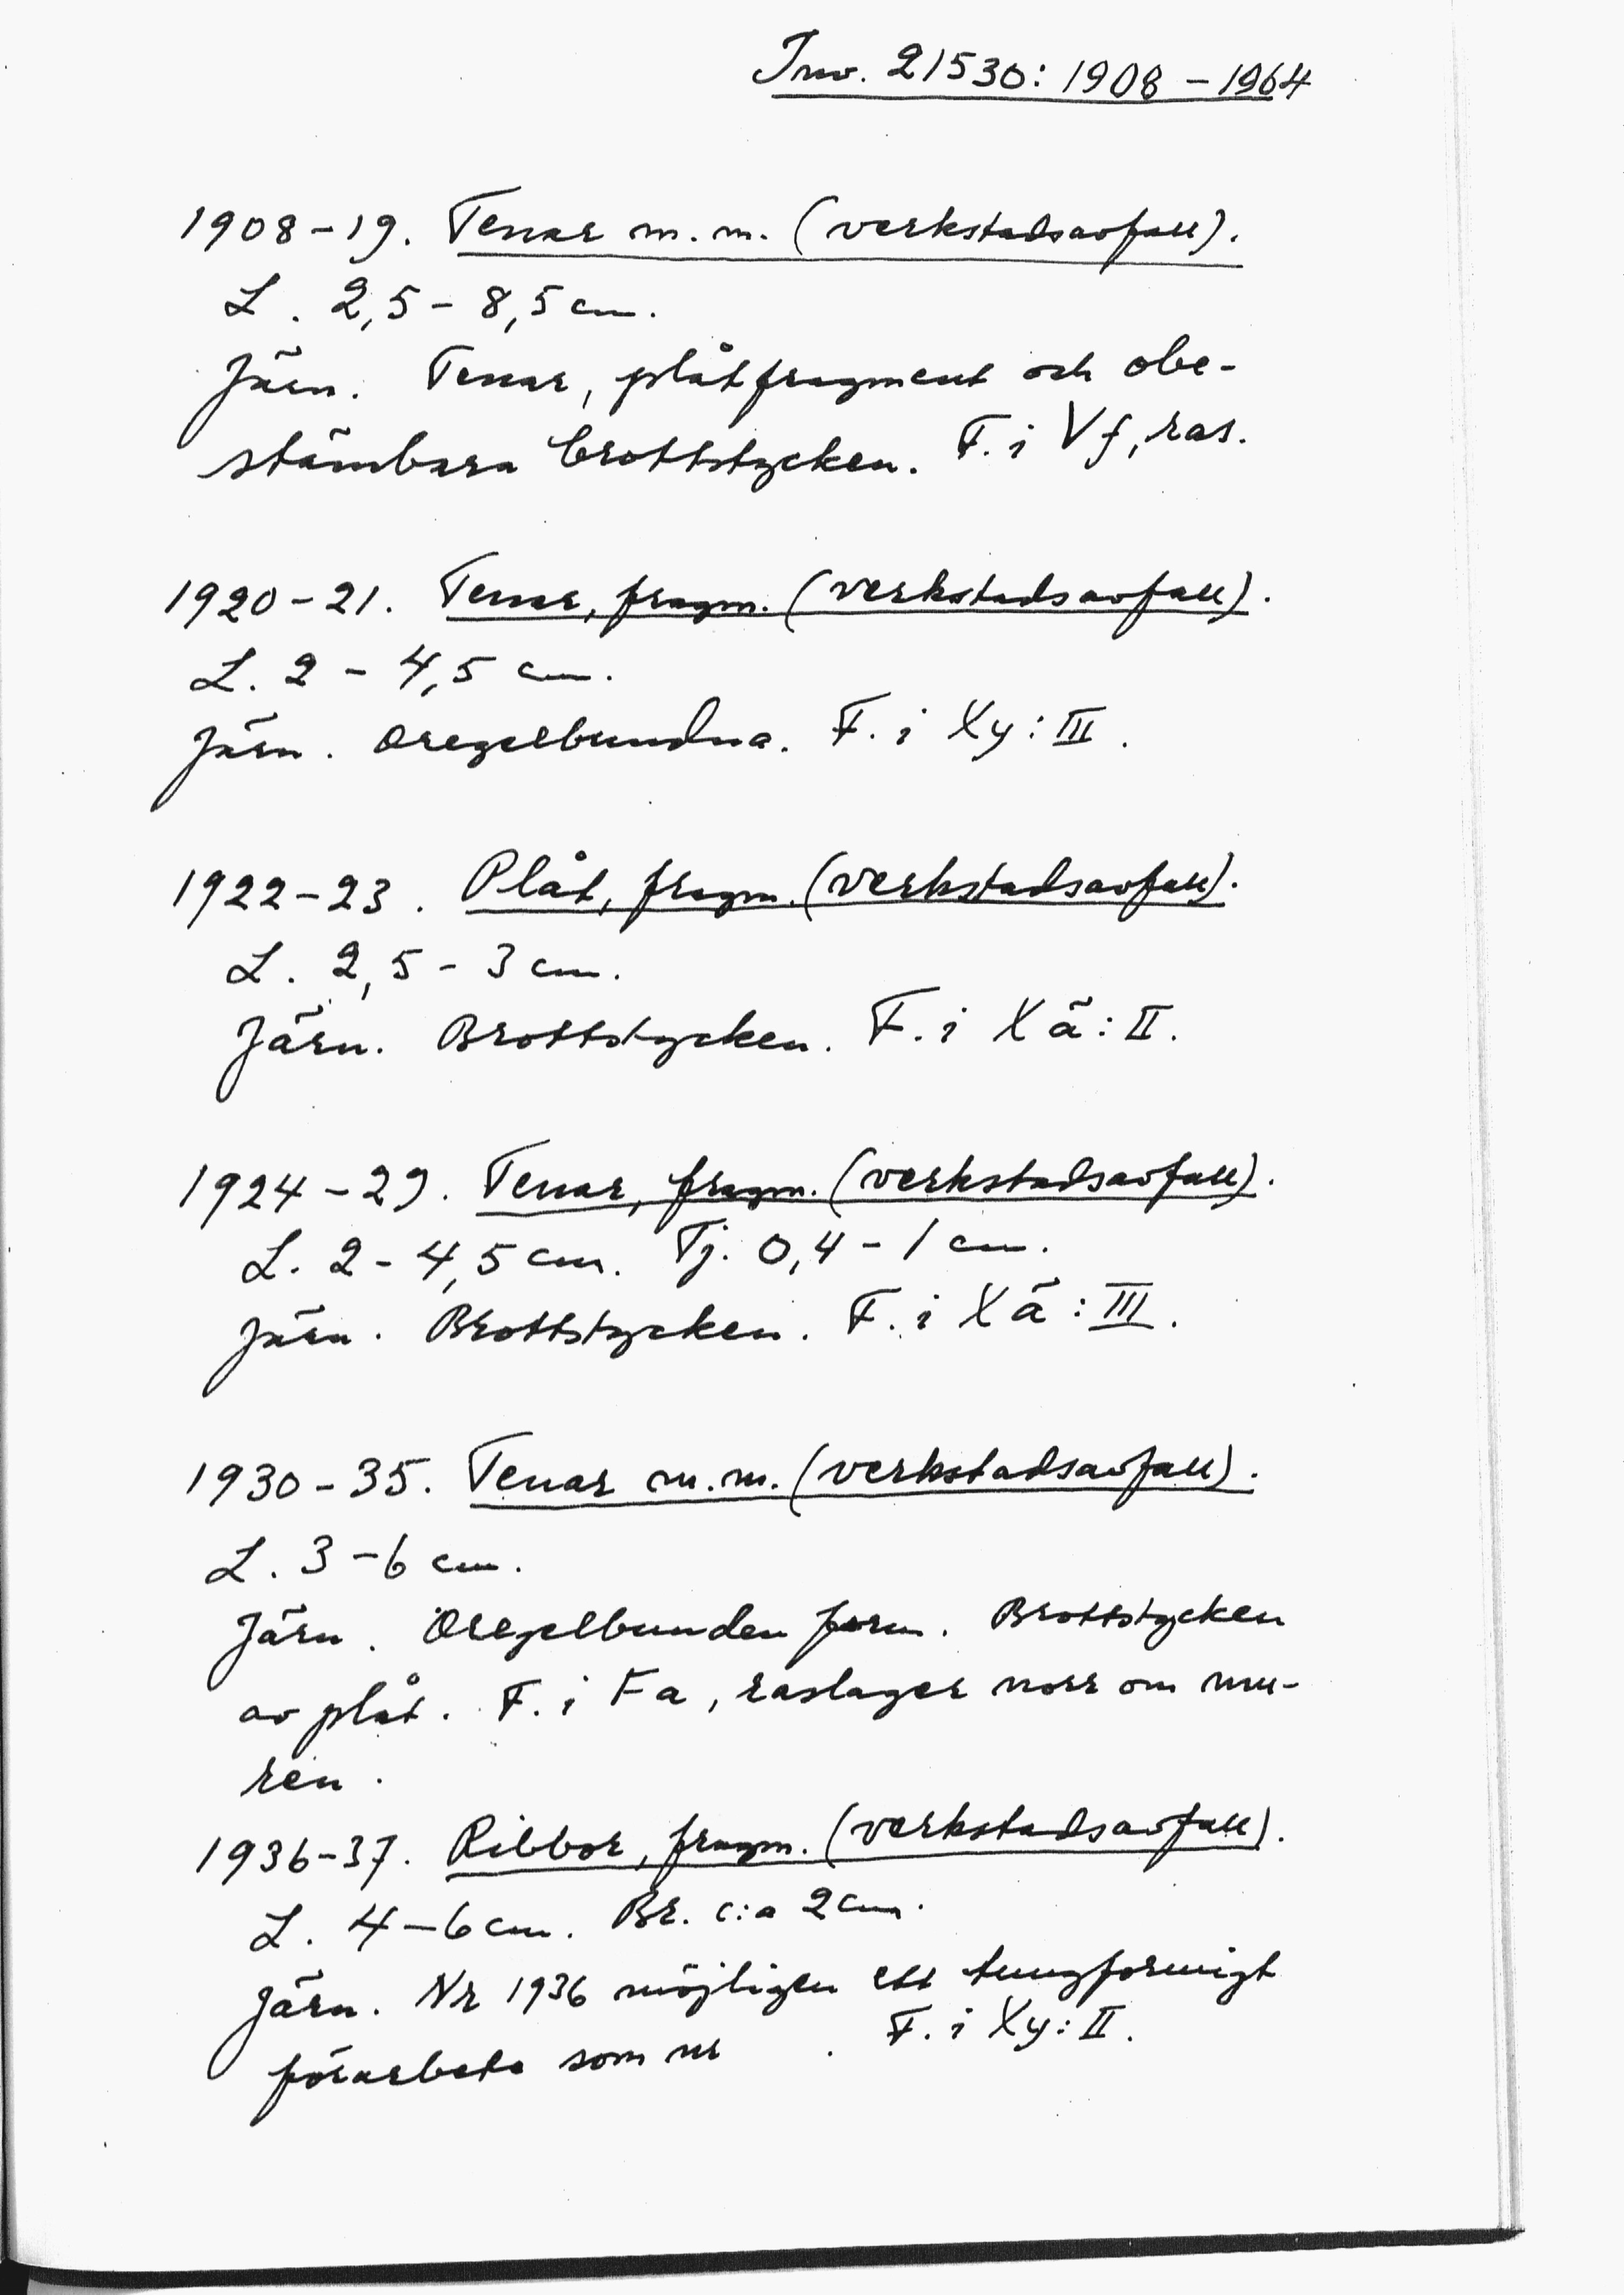 Inv. 21530: 1908 - 1964
1908-19. Tenar m.m. (verkstadsavfall).
L. 2,5 - 8,5 cm.
Järn. Tenar, plåtfragment och obe-
stämbara brottstycken. F. i Vf, ras.
1920-21. Tenar, fragm. (verkstadsavfall).
L. 2 - 4,5 cm.
Järn. Oregelbundna. F. i Xy: III.
1922-23. Plåt, fragm. (verkstadsavfall).
L. 2,5 - 3 cm.
Järn. Brottstycken. F. i Xä: II.
1924-29. Tenar, fragm. (verkstadsavfall).
L. 2 - 4,5 cm. Tj. 0,4 - 1 cm.
Järn. Brottstycken. F. i Xä: III.
1930-35. Tenar m.m. (verkstadsavfall).
L. 3 - 6 cm.
Järn. Oregelbunden form. Brottstycken
av plåt. F. i Fa, raslager norr om mu-
ren.
1936-37. Ribbor, fragm. (verkstadsavfall).
L. 4 - 6 cm. Br. c:a 2 cm.
Järn. Nr 1936 möjligen ett tungformigt
förarbete som nr . F. i Xy: II.